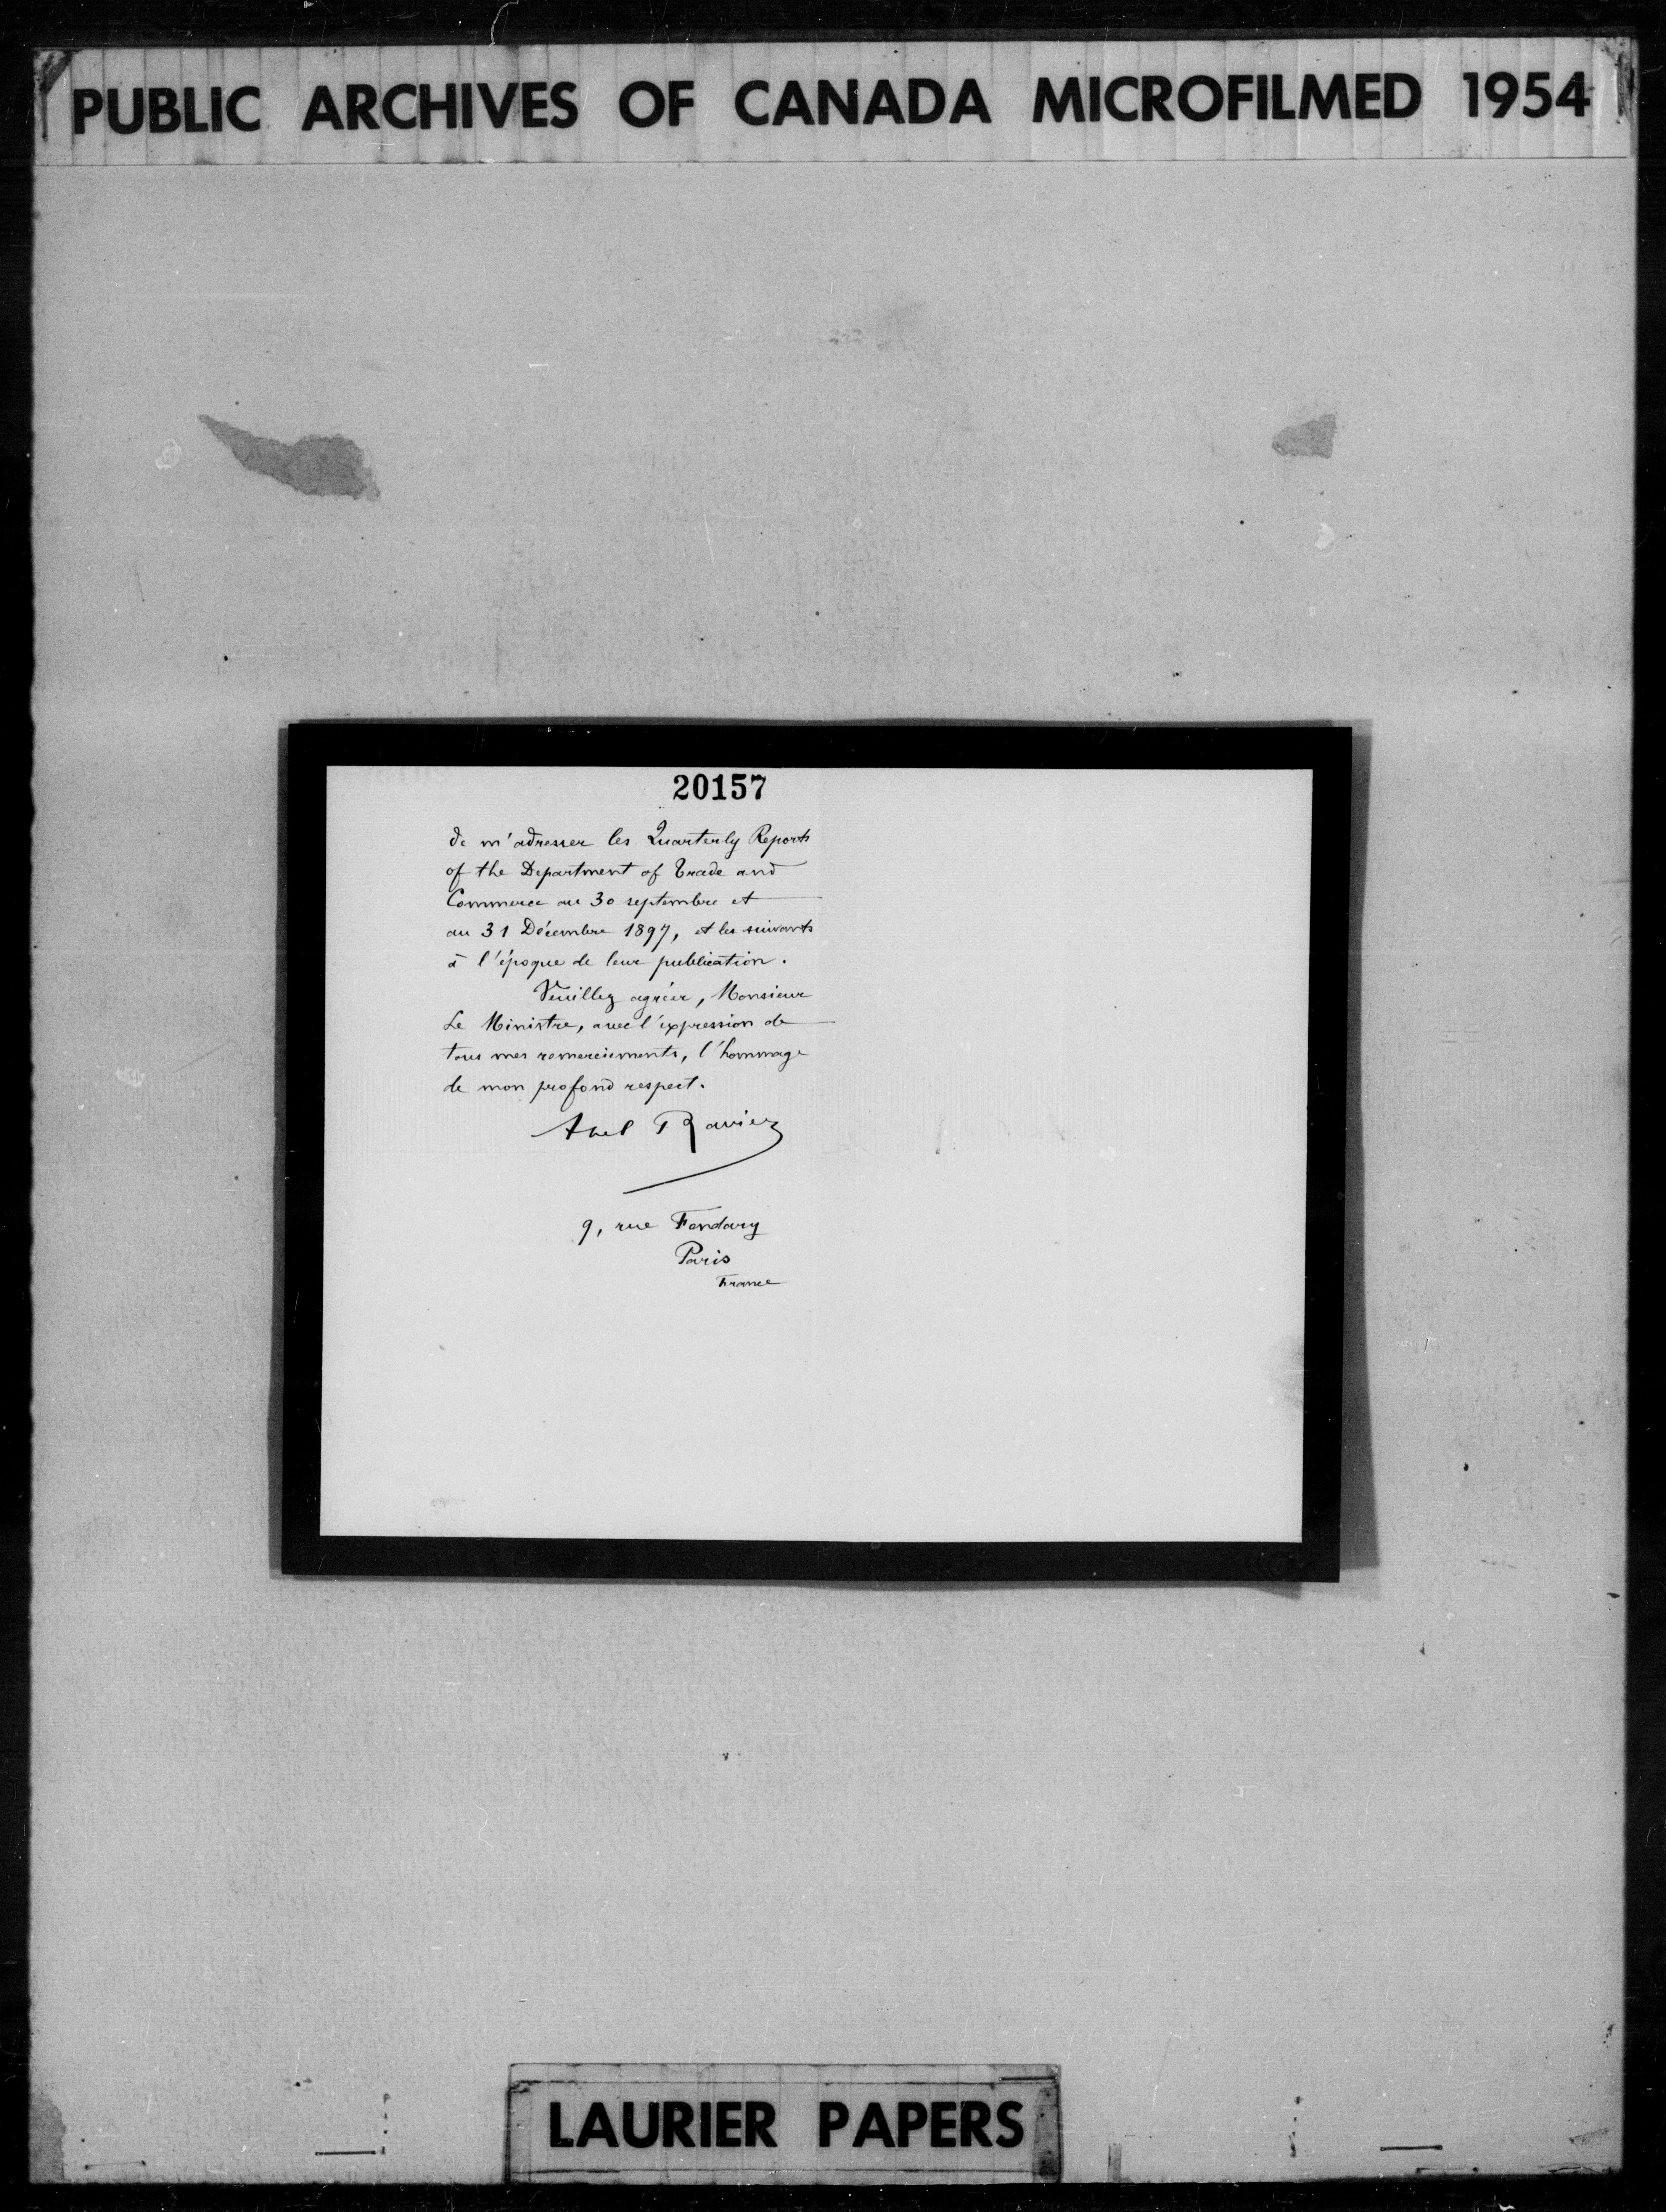 PUBLIC ARCHIVES OF CANADA MICROFILMED 1954
20157
de m'adresser les Quarterly Reports
of the Department of Trade and
Commerce au 30 septembre et
au 31 Décembre 1897, et les suivants
à l'époque de leur publication.
Veuillez agréer, Monsieur
Le Ministre, avec l'expression de
tous mes remerciements, l'hommage
de mon profond respect.
Abel Raviez
9, rue Fondary
Paris
France
LAURIER PAPERS